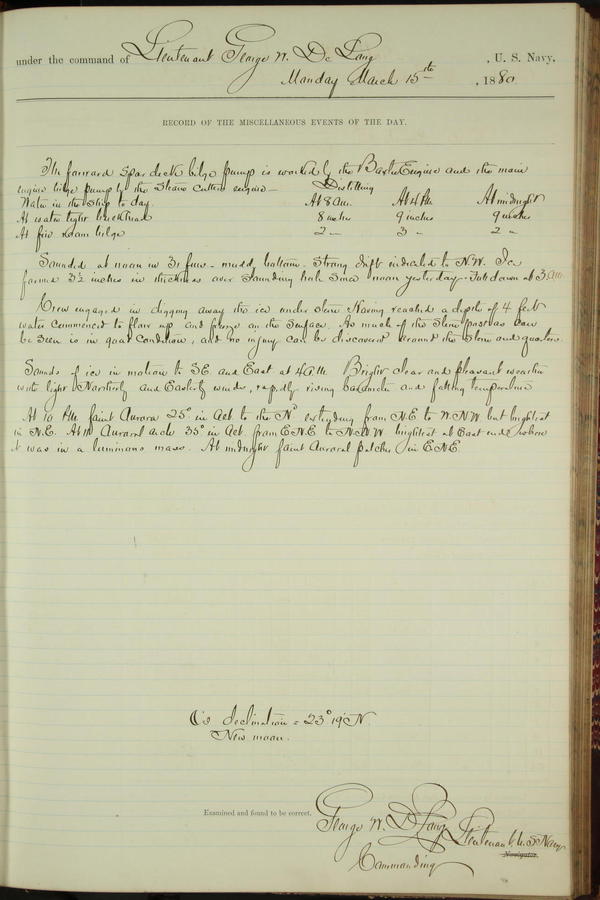 under the command of Lieutenant George W. De Long, U. S. Navy,
Monday March 15th, 1880
RECORD OF THE MISCELLANEOUS EVENTS OF THE DAY.
The forward spar deck bilge pump is worked by the Baxter Engine and the main
engine bilge pump by the Steam Cutters engine— Distilling
Water in the Ship to day. At 8 a.m. At 4 P.M. At midnight
At water tight bulkhead 8 inches 9 inches 9 inches
At fire room bilge 2 " 3 " 2 "
Sounded at noon in 31 fms - mud bottom. Strong drift indicated to N.W. Ice
formed 3½ inches in thickness over Sounding hole Since noon yesterday - down at 3. a.m.
Crew engaged in digging away the ice under Stem Having reached a depth of 4 feet
water commenced to flow up and freeze on the surface. As much of the Stem post as can
be seen is in good condition, and no injury can be discovered around the Stem and quarters.
Sounds of ice in motion to SE and East at 4 a.m. Bright clear and pleasant weather
with light Northerly and Easterly winds, rapidly rising barometer and falling temperature
At 10 P.M. faint Aurora 25° in Alt to the Nd extending from N.E to W.N.W but brightest
in N.E. At 11 Auroral arch 35° in Alt. from E.N.E to N.N.W brightest at East end where
it was in a luminous mass. At midnight faint Auroral patches in E.N.E.
☾'s declination = 23° 19' N.
New moon.
Examined and found to be correct.
George W. De Long Lieutenant U. S. Navy
Navigator.
Commanding